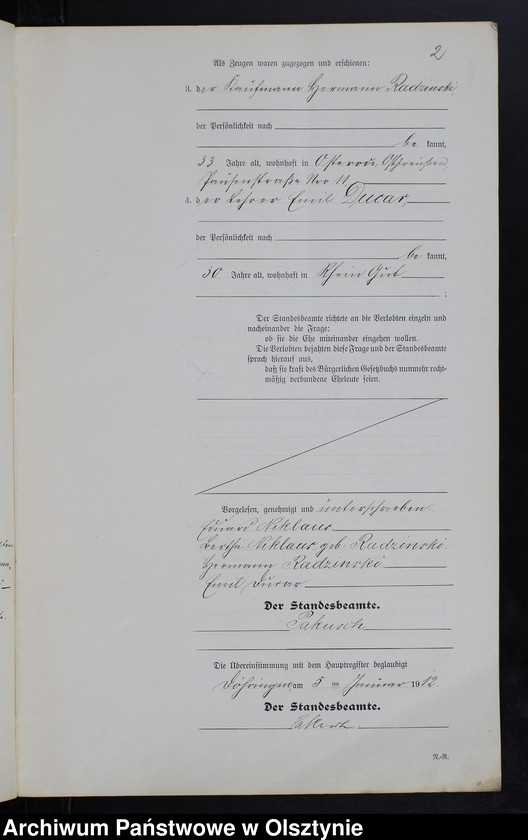 2
Als Zeugen waren zugezogen und erschienen:
3. der Kaufmann Hermann Radzinski
der Persönlichkeit nach
be kannt,
23 Jahre alt, wohnhaft in Osterode Ostpreußen
Nro 11
4. der Lehrer Emil Ducar,
der Persönlichkeit nach
be kannt,
30 Jahre alt, wohnhaft in Rhein Gut
;
Der Standesbeamte richtete an die Verlobten einzeln und
nacheinander die Frage:
ob sie die Ehe miteinander eingehen wollen.
Die Verlobten bejahten diese Frage und der Standesbeamte
sprach hierauf aus,
daß sie kraft des Bürgerlichen Gesetzbuchs nunmehr recht-
mäßig verbundene Eheleute seien.
Vorgelesen, genehmigt und unterschrieben.
Eduard Niklaus
Bertha Niklaus geb. Radzinski
Hermann Radzinski
Emil Ducar
Der Standesbeamte.
Die Übereinstimmung mit dem Hauptregister beglaubigt
Döhringen am 5 ten Januar 1912.
Der Standesbeamte.
N.-R.
Archiwum Państwowe w Olsztynie